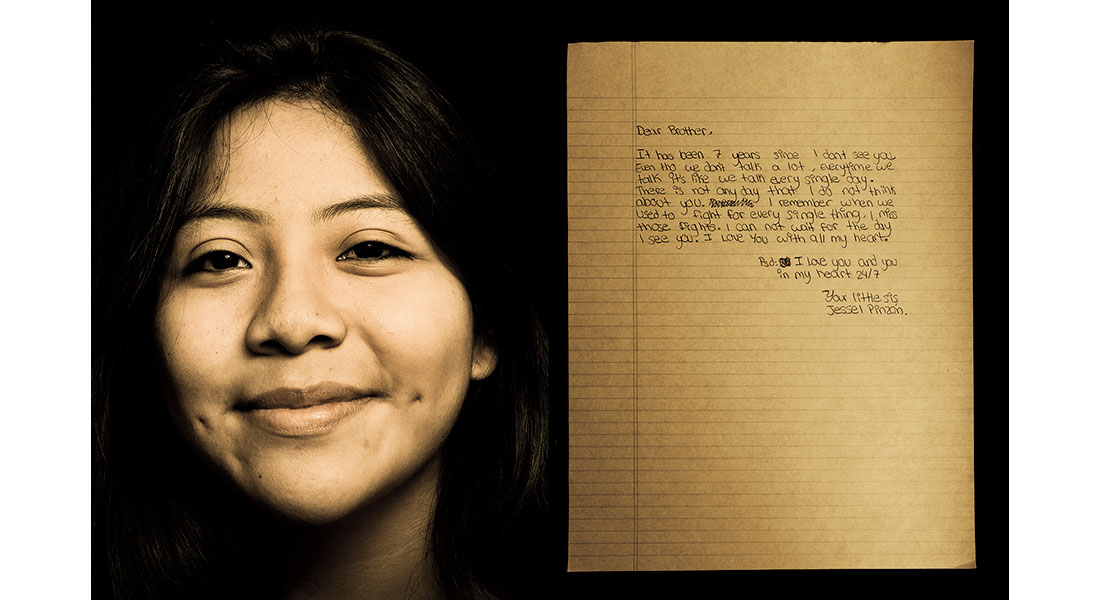 Dear Brother,
It has been 7 years since I dont see you.
Even tho we don't talk a lot, everytime we
talk it's like we talk every single day.
There is not any day that I do not think
about you. I remember when we
used to fight for every single thing, I miss
those fights. I can not wait for the day
I see you. I love you with all my heart.
Psd: I love you and you
in my heart 24/7
Your little sis
Jessel Pinzón.